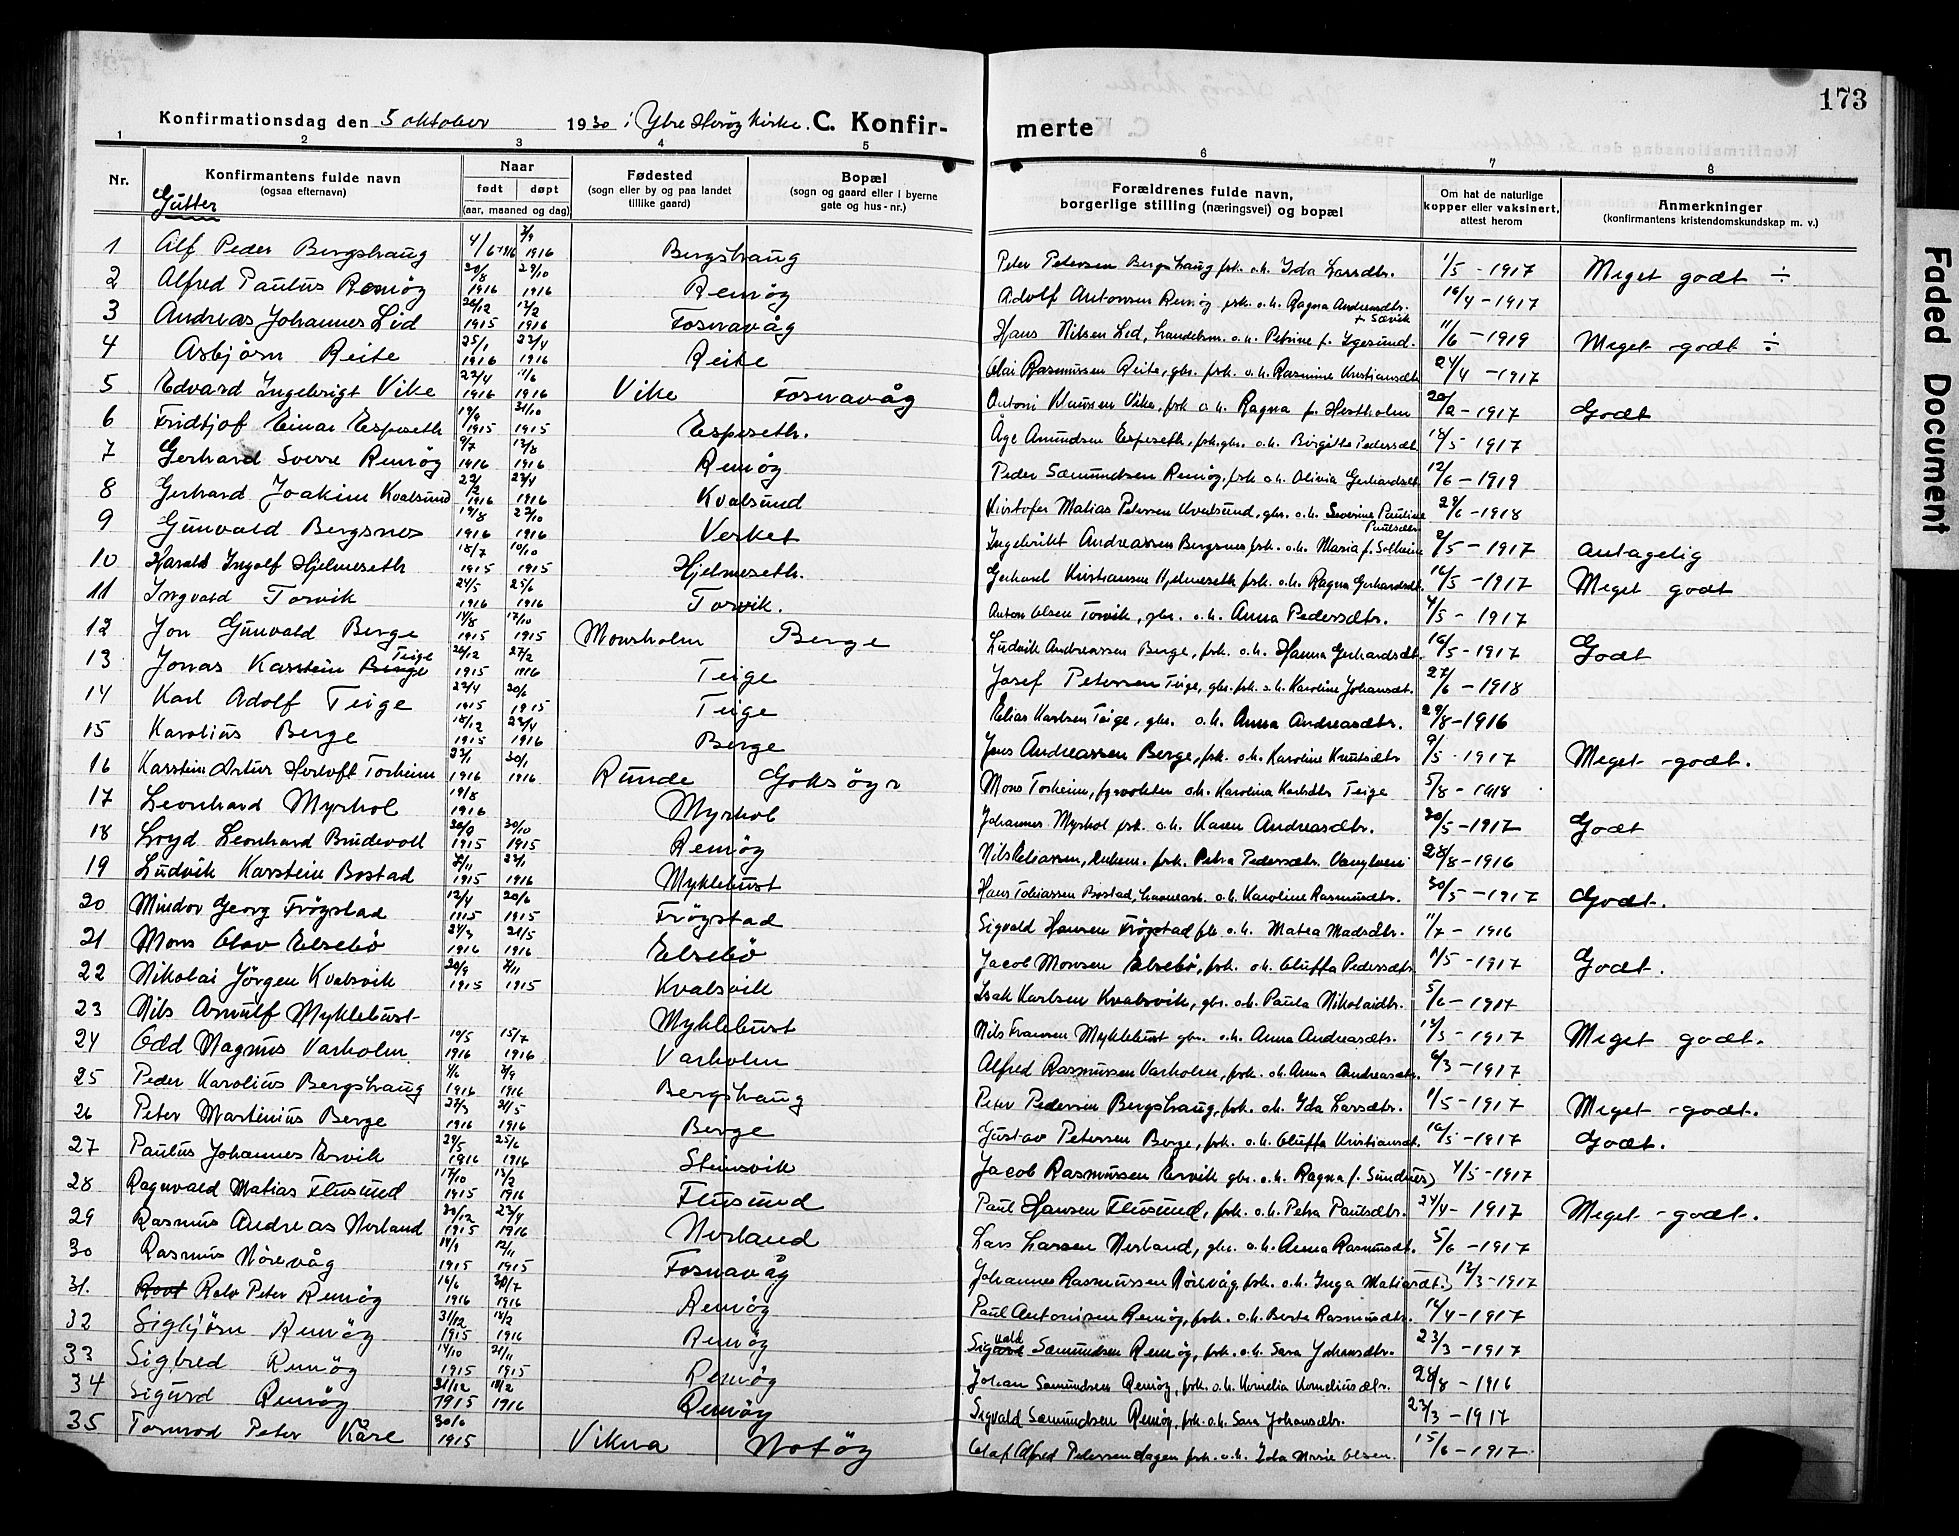 173
Konfirmationsdag den 5 oktober 1930 i Ytre Herøy Kirke. C. Konfir- merte
1 2 3 4 5 6 7 8
Nr. Konfirmantens fulde navn (ogsaa efternavn) Naar født døpt (aar, maaned og dag) Fødested (sogn eller by og paa landet tillike gaard) Bopæl (sogn og gaard eller i byerne gate og hus-nr.) Forældrenes fulde navn, borgerlige stilling (næringsvei) og bopæl Om hat de naturlige kopper eller vaksinert, attest herom Anmerkninger (konfirmantens kristendomskundskap m. v.)
Gutter
1 Alf Peder Bergshaug 4/6 1916 3/9 1916 Bergshaug Peter Petersen Bergshaug fsk. o.h. Ida Larsdtr. 1/5 - 1917 Meget godt ÷
2 Alfred Paulus Remöy 20/8 1916 29/10 1916 Remöy Adolf Antonsen Remöy fsk. o.h. Ragna 16/4 - 1917
3 Andreas Johannes Lid 26/12 1915 13/2 1916 Fosnavåg Hans Nilsen Lid, handelsm. o.h. Petrine f. Igesund. 11/6 - 1919 Meget godt ÷
4 Asbjörn Reite 25/1 1916 23/4 1916 Reite Olai Rasmussen Reite, gbr. fsk. o.h. Rasmine Kristiansdtr 24/4 - 1917
5 Edvard Ingebrigt Vike 22/4 1916 11/6 1916 Vike Fosnavåg Antoni Vike, fsk o.h. Ragna f. Hestholm 20/2 - 1917 Godt
6 Fridtjof Einar Espeseth 19/9 1915 31/10 1915 Espeseth. Åge Amundsen Espeseth, fsk. gbr. o.h. Birgitte Pedersdt 18/5 1917
7 Gerhard Sverre Remöy 9/7 1916 13/8 1916 Remöy Peder Sæmundsen Remöy, fsk o.h. Olivia Gerhardsdt 12/6 - 1919
8 Gerhard Joakim Kvalsund 22/2 1916 24/4 1916 Kvalsund Kristofer Matias Petersen Kvalsund, gbr. o.h. Severine Pauline Paulsdtr 29/6 - 1918
9 Gunvald Bergsnes 19/8 1916 22/10 1916 Verket Ingebrikt Andreassen Bergsnes fsk. o.h. Maria f. Solheim 2/5 - 1917 antagelig
10 Harald Ingolf Hjelmeseth 18/7 1915 10/10 1915 Hjelmeseth. Gerhard Kristiansen Hjelmeseth fsk. o.h. Ragna Gerhardsdt. 16/5 - 1917 Meget godt
11 Ingvald Torvik 24/5 1916 25/6 1916 Torvik. Anton Olsen Torvik, gbr. o.h. Anna Pedersdtr. 4/5 - 1917
12 Jon Gunvald Berge 14/8 1915 17/10 1915 Monsholm Berge Ludvik Andreassen Berge, fsk. o.h. Hanna Gerhardsdt. 16/5 - 1917 Godt
13 Jonas Karstein Berge Teige 26/12 1915 27/2 1916 Teige Josef Petersen Teige, gbr. fsk. o.h. Karoline Johansdt. 27/6 - 1918
14 Karl Adolf Teige 22/4 1915 20/6 1915 Teige Elias Karlsen Teige, gbr. o.h. Anna Andreasdtr. 29/8 - 1916
15 Karolius Berge 18/12 1915 24/4 1916 Berge Jens Andreassen Berge, fsk. o.h. Karoline Knutsdtr 9/5 - 1917 Meget godt.
16 Karstein Artur Herloft Torheim 23/1 1916 30/1 1916 Runde Goksöyr Mons Torheim, o.h. Karolina Karlsdtr Teige 5/8 - 1918
17 Leonhard Myrhol 19/8 1916 Myrhol Johannes Myrhol fsk. o.h. Karen Andreasdtr. 20/5 - 1917 Godt
18 Loyd Leonhard Brudevoll 20/9 1915 30/10 1915 Remöy Nils Eliassen, fsk. Petra Pedersdtr. Vanylven 28/8 - 1916
19 Ludvik Karstein Bostad 2/11 1915 23/1 1916 Myklebust Hans Tobiassen Bostad, havnearb. o.h. Karoline Rasmusdtr. 30/5 - 1917 Godt.
20 Mindor Georg Fröystad 12/4 1915 20/6 1915 Fröystad Sigvald Hansen Fröystad fsk o.h. Matea Madsdtr. 11/7 - 1916
21 Mons Olav Elsebö 24/3 1916 21/5 1916 Elsebö Jacob Monsen Elsebö, fsk. o.h. Oluffa Pedersdtr 1/5 - 1917 Godt.
22 Nikolai Jörgen Kvalsvik 20/9 1915 7/11 1915 Kvalsvik Isak Karlsen Kvalsvik, gbr. o.h. Paula Nikolaidtr. 5/6 - 1917
23 Nils Arnulf Myklebust Myklebust Nils Fransen Myklebust gbr. o.h. Anna Andreasdtr. 12/5 - 1917 Meget godt.
24 Odd Magnus Varholm 10/5 1916 15/7 1916 Varholm Alfred Rasmussen Varholm, fsk. o.h. Anna Andreasdtr. 6/3 - 1917
25 Peder Karolius Bergshaug 4/6 1916 3/9 1916 Bergshaug Peter Pedersen Bergshaug, fsk. o.h. Ida Larsdtr. 1/5 - 1917 Meget godt.
26 Peter Martinius Berge 27/3 1916 21/5 1916 Berge Gustav Petersen Berge, fsk. o.h. Oluffa Kristiansdt. 16/5 - 1917 Godt.
27 Paulus Johannes Ervik 24/5 1916 25/6 1916 Steinsvik Jacob Rasmussen Ervik gbr. o.h. Ragna f. Sundnes) 4/5 - 1917
28 Ragnvald Matias Flusund 17/10 1915 13/2 1916 Flusund Paul Hansen Flusund, fsk. o.h. Petra Paulsdtr. 24/4 - 1917 Meget godt.
29 Rasmus Andreas Nerland 20/12 1915 23/4 1916 Nerland Lars Larsen Nerland, gbr. o.h. Anna Rasmusdt. 5/6 - 1917
30 Rasmus Nörevåg 14/9 1915 12/11 1915 Fosnavåg Johannes Rasmussen Nörevåg, fsk. o.h. Inga Matiasdt.) 12/3 - 1917
31. Rolv Peter Remöy 16/6 1916 30/7 1916 Remöy Paul Antonsen Remöy, fsk. o.h. Berte Rasmusdtr. 14/4 - 1917
32 Sigbjörn Remöy 31/12 1915 18/2 1916 Remöy Sigvald Sæmundsen Remöy, fsk. o.h. Sara Johansdtr. 23/3 - 1917
33 Sigfred Remöy 14/10 1915 21/11 1915 Remöy Johan Sæmundsen Remöy, fsk. o.h. Kornelia Korneliusdtr. 28/8 - 1916
34 Sigurd Remöy 31/12 1915 18/2 1916 Remöy Sigvald Sæmundsen Remöy, fsk. o.h. Sara Johansdtr. 23/3 - 1917
35 Tormod Peter Kåre 30/6 1915 Vikna Notöy Olaf Alfred Petersen dagen fsk. o.h. Ida Marie Olsen. 15/6 - 1917
Faded Document